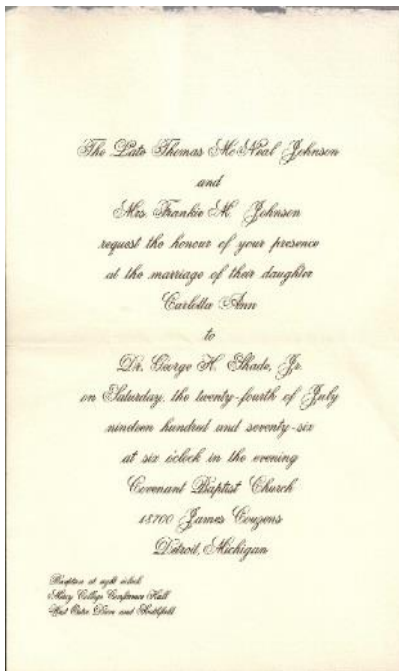 The Late Thomas Mc Neal Johnson
and
Mrs. Frankie M. Johnson
request the honour of your presence
at the marriage of their daughter
Carletta Ann
to
Dr. George H. Shade, Jr.
on Saturday, the twenty-fourth of July
nineteen hundred and seventy-six
at six o'clock in the evening
Covenant Baptist Church
18700 James Couzens
Detroit, Michigan
Reception at eight o'clock
Mercy College Conference Hall
West Outer Drive and Southfield